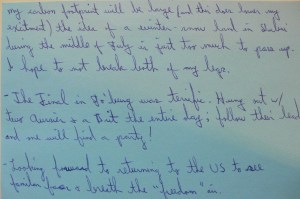 my carbon footprint will be huge (and the dive lowers my
excitment) the idea of a winter-snow land in
during the middle of July is just too much to pass up.
I hope to not break both of my legs.
- The Final in was terrific. Hung out w/
two Aussies & a Brit the entire day; follow their lead
and one will find a party!
- Looking forward to returning to the US to see
familiar faces & breath the "freedom" air.